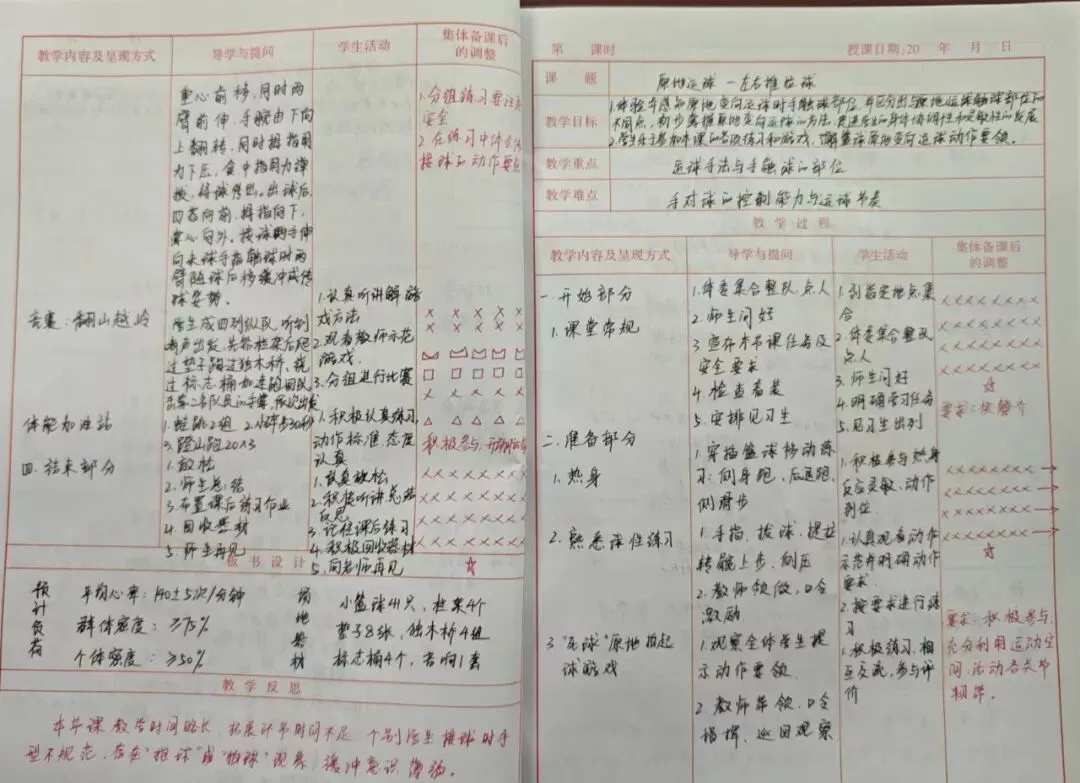 教学内容及呈现方式 导学与提问 学生活动 集体备课后的调整
重心前移，同时两
臂前伸，手腕由下向
上翻转，同时拇指用
力下压，食中指用力弹
拨，将球传出。出球后
四指向前，拇指向下，
掌心向外。接球时手伸
向来球手指触球时两
臂随球后移缓冲成传
球姿势。
1.分组练习要注意
安全
2.在练习中体会传
接球的动作要点
竞赛：翻山越岭
学生成四列纵队，听到
哨声出发，先跨栏架后爬
过垫子踏过独木桥，绕
过标志桶加速跑回队，
1.认真听讲解游
戏方法
2.观看教师示范
游戏
3.分组进行比赛
体能加油站
1.蛙跳2组 2.小碎步30秒
3.登山跑20×3
1.积极认真练习，
动作标准，态度
认真
积极参与，
四.结束部分
1.放松
2.师生总结
3.布置课后练习作业
4.回收器材
5.师生再见
1.认真放松
2.积极听讲总结
反思
3.记住课后练习
4.积极回收器材
5.向老师再见
板书设计
预计负荷
平均心率：140±5次/分钟
群体密度：≥75%
个体密度：≥50%
场地器材
小篮球41只，栏架4个
垫子8张，独木桥4组
标志桶4个，音响1套
教学反思
本节课教学时间略长，拓展环节时间不足，个别学生接球时手
型不规范，存在"抱球"或"拍球"现象，缓冲意识薄弱。
第 课时 授课日期：20 年 月 日
课题 原地运球—左右推拉球
教学目标
1.体验并感知原地变向运球时手触球部位，并区分出与原地运球触球部位的
不同点，初步掌握原地变向运球的方法，促进学生的身体协调性和灵敏性的发展
2.学生乐于参加本课的各项练习和游戏，了解篮球原地变向运球动作要领。
教学重点 运球手法与手触球的部位
教学难点 手对球的控制能力与运球节奏
教学过程
教学内容及呈现方式 导学与提问 学生活动 集体备课后的调整
一.开始部分
1.课堂常规
1.体委集合整队，点人
2.师生问好
3.宣布本节课任务及
安全要求
4.检查着装
5.安排见习生
1.到指定地点集
合
2.体委集合整队
点人
3.师生问好
4.明确学习任务
5.见习生出列
要求：快静齐
二.准备部分
1.热身
1.穿插篮球移动练
习：侧身跑、后退跑、
侧滑步
1.积极参与热身
反应灵敏，动作
到位
2.熟悉球性练习
1.手指、拨球、提拉
转髋上步，侧压
2.教师领做，口令
激励
1.认真观看动作
示范并明确动作
要求
2.按要求进行练
习
要求：积极参与，
充分利用运动空
间，活动各关节
韧带。
3."死球"原地拍起
球游戏
1.观察全体学生提
示动作要领
2.教师带领，口令
指挥，巡回观察
1.积极练习，相
互交流，参与评
价